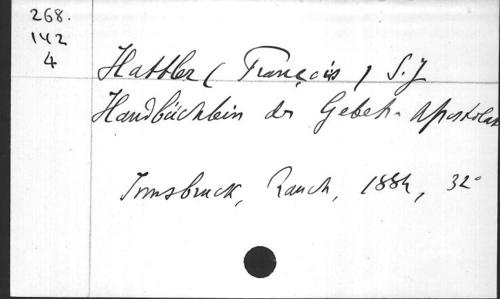 268.
142
4
Hattler (François) S.J
Handbüchlein des Gebets-Apostolat
Innsbruck, Rauch, 1884, 32°